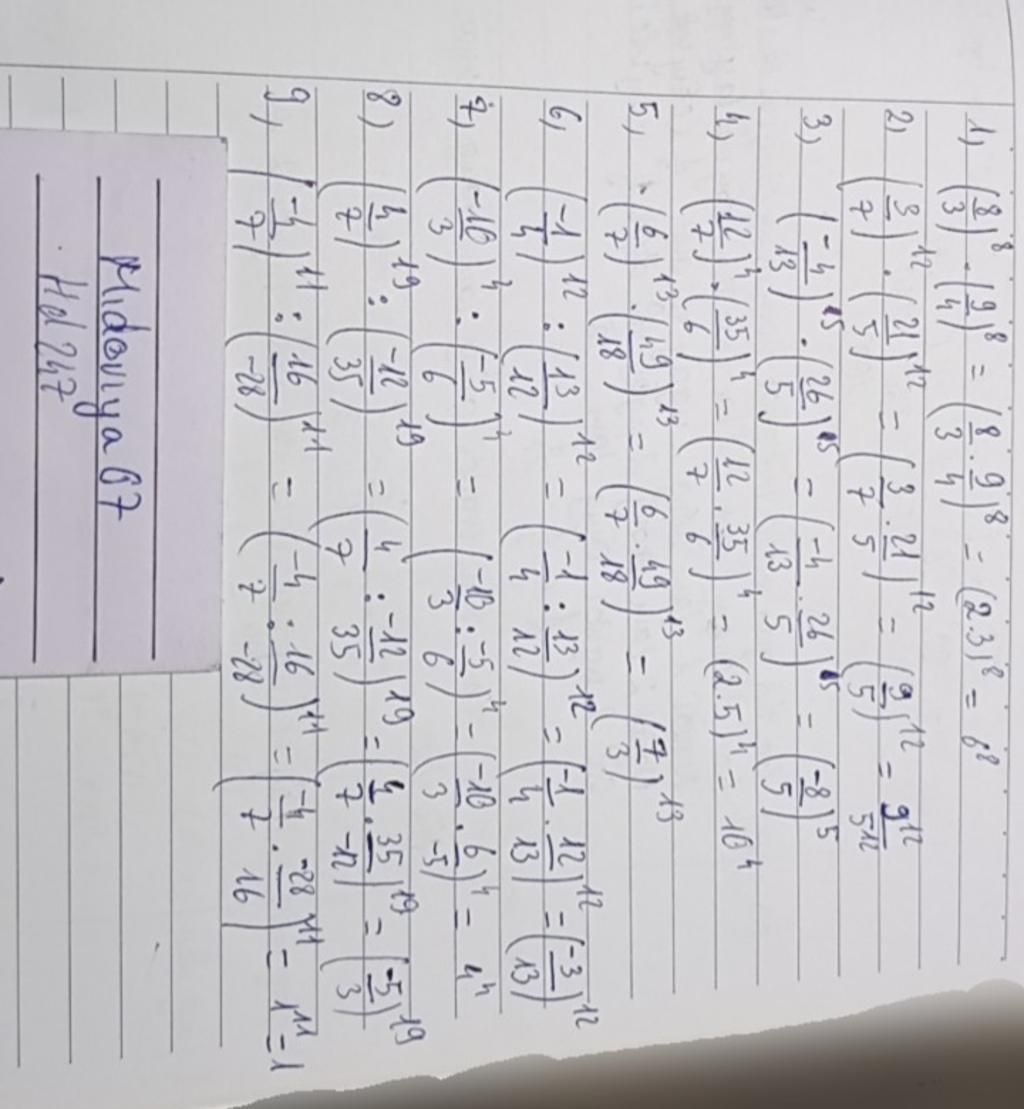 1, (8/3)^8 · (9/4)^8 = (8/3 · 9/4)^8 = (2.3)^8 = 6^8
2, (3/7)^12 · (21/5)^12 = (3/7 · 21/5)^12 = (9/5)^12 = 9^12/5^12
3, (-4/13)^5 · (26/5)^5 = (-4/13 · 26/5)^5 = (-8/5)^5
4, (12/7)^4 · (35/6)^4 = (12/7 · 35/6)^4 = (2.5)^4 = 10^4
5, (6/7)^13 · (49/18)^13 = (6/7 · 49/18)^13 = (7/3)^13
6, (-1/4)^12 : (13/12)^12 = (-1/4 : 13/12)^12 = (-1/4 · 12/13)^12 = (-3/13)^12
7, (-10/3)^4 : (-5/6)^4 = (-10/3 : -5/6)^4 = (-10/3 · 6/-5)^4 = 4^4
8, (4/7)^19 : (-12/35)^19 = (4/7 : -12/35)^19 = (4/7 · 35/-12)^19 = (-5/3)^19
9, (-4/7)^11 : (16/-28)^11 = (-4/7 : 16/-28)^11 = (-4/7 · -28/16)^11 = 1^11 = 1
Midoriya67
Hd247